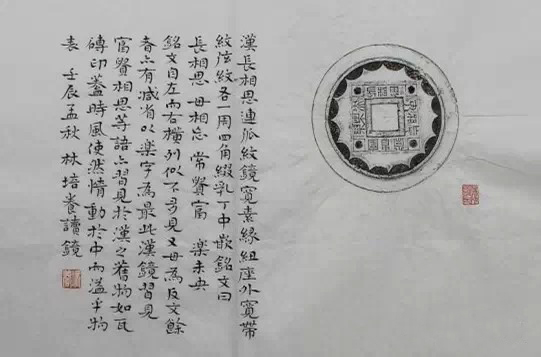 漢長相思連弧紋鏡寬素緣鈕座外寬帶
紋弦紋各一周四角綴乳丁中嵌銘文曰
長相思 毋相忘 常貴富 樂未央
銘文自左而右橫列似不多見又毋為反文餘
者亦有减省以樂字為最此漢鏡習見
富貴相思等語亦習見於漢之舊物如瓦
磚印蓋時風使然情動於中而溢乎物
表 壬辰孟秋 林培養讀鏡